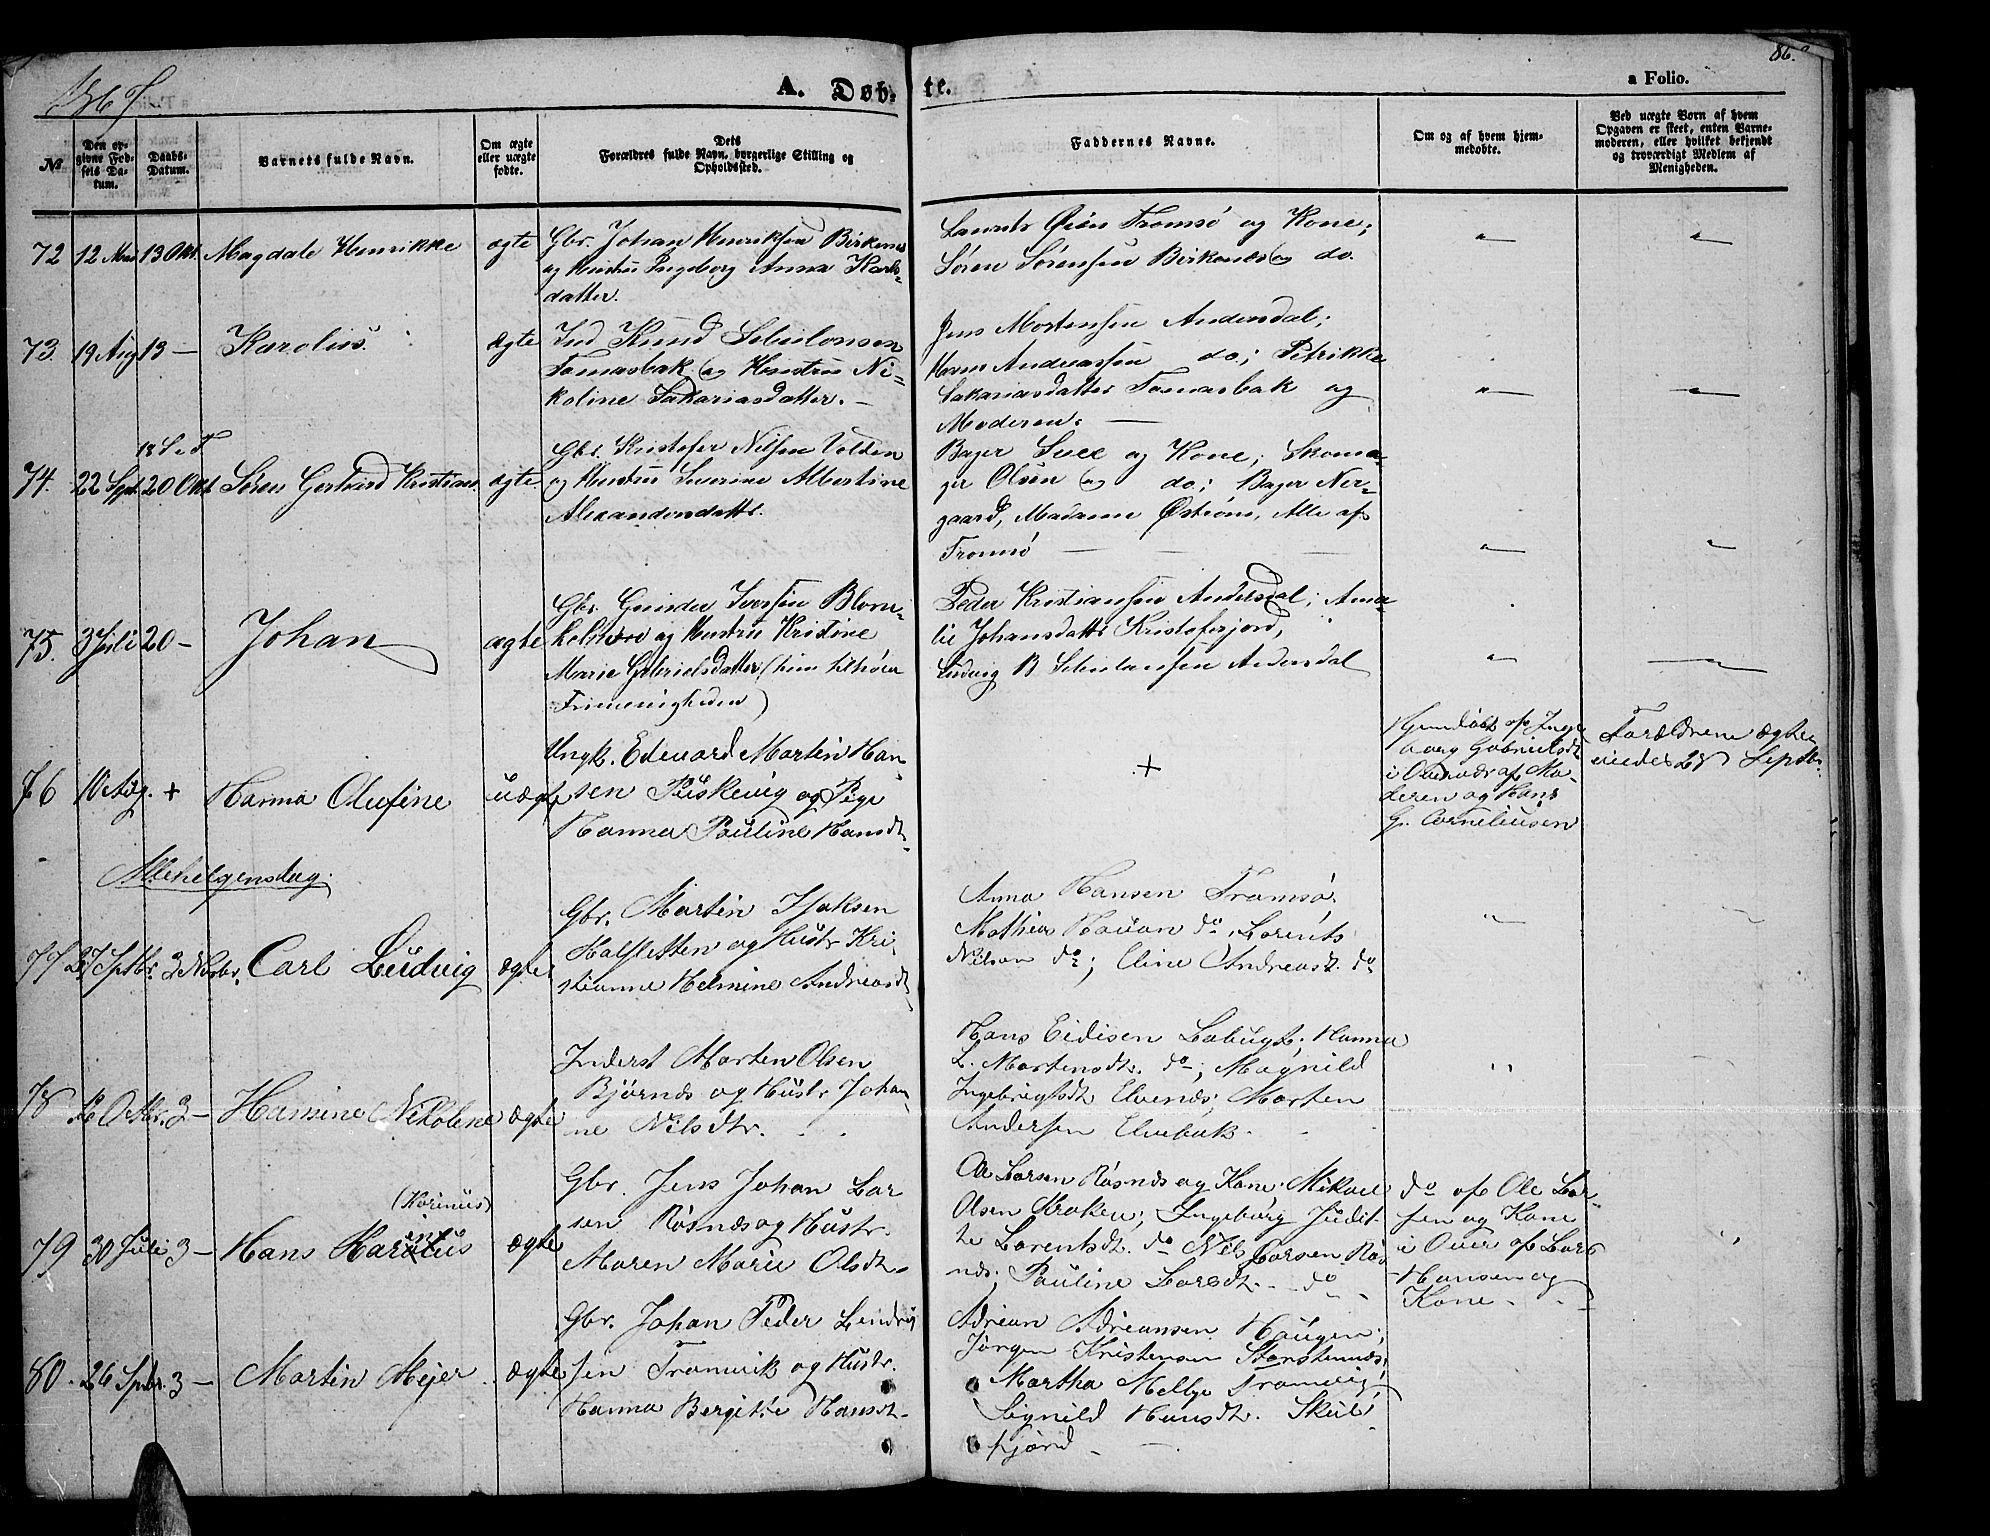 1867
A. Døb-
te.
a Folio.
86.
No
Den op-
givne Fød-
sels Da-
tum.
Daabs-
Datum.
Barnets fulde Navn.
Om ægte
eller uægte
fødte.
Dets
Forældres fulde Navn, borgerlige Stilling og
Opholdssted.
Faddernes Navne.
Om og af hvem hjem-
medøbte.
Ved uægte Børn af hvem
Opgaven er skeet, enten Barne-
moderen, eller hvilket bekjendt
og troværdigt Medlem af
Menigheden.
72 12 13 Okt. Magdale Henrikke ægte
Gbr. Johan Henriksen Birkenes
og Hustru Ingeborg Anna Karls-
datter.
Øien Tromsø og Kone;
Søren Sørensen Birkenes og do.
73. 19 Aug 13 — Karolius. ægte
Ind Knud
Tomasbak og Hustru Ni-
koline Sakariasdatter. —
Jens Mortensen Andersdal;
Andreassen do.; Petrikke
Sakariasdatter Tomasbak og
Moderen. —
74. 22 Sept. 20 Okt. Søren Gerhard Kristian. ægte
18 S. e. T.
Gbr. Kristofer Nilsen Volden
og Hustru Severine Albertine
Alexandersdatter.
Bager og Kone; Skoma-
ger Olsen og do; Bager Ner-
gaard, Madame Østrøm, Alle af
Tromsø — — —
75. 3 Juli 20 — Johan ægte
Gbr. Iversen Blom-
og Hustru Kristine
Marie Gabrielsdatter (hun tilhører
Frimenigheden)
Peder Kristiansen Andersdal; Ama-
lie Johansdatter Kristoferjord,
Ludvig B Andersdal
76 10 Aug. + Hanna Olufine uægte
Ungk. Edevard Martin Han-
sen og Pige
Hanna Pauline Hansdt.
+
Hjemdøbt af Inge-
borg Gabrielsdt
i Overvær af Mo-
deren og Hans
G. Corneliussen
Forældrene ægte-
viedes 28 Septbr.
Allehelgensdag.
77 27 Septbr. 3 Novbr. Carl Ludvig ægte
Gbr. Martin Isaksen
Kalfsletten og Hustr. Kri-
stianne Helmine Andreasdt.
Anna Hansen Tromsø.
Mathias Hauan do, Lorents
Nilsen do; Eline Andreasdt. do
78 Octbr. 3 — Hansine Nikolene ægte
Inderst Morten Olsen
Bjørnes og Hustr. Johan-
ne Nilsdtr.
Hans Eidisen Labugt; Hanna
L. Mortensdt. do; Magnild
Ingebrigtsdt Elvenes; Morten
Andersen Elvebak.
79 30 Juli 3 — Hans Karolus ægte
(Korinus)
Gbr. Jens Johan Lar-
sen Røsnæs og Hustr.
Maren Marie Olsdt.
Ole Larsen Røsnæs og Kone; Mikael
Olsen Kroken; Ingeborg Judit-
te Lorentsdt. do Nils Larsen Røs-
næs; Pauline Larsdt. — do —
do af Ole Lar-
sen og Kone
i Over. af Lars
Hansen og
Kone. —
80. 26 Sptbr. 3 — Martin Mejer. ægte
Gbr. Johan Peder Lendrik-
sen Tromvik og Hustr.
Hanna Bergitte Hansdt.
Adrian Adriansen Haugen;
Jørgen Kristensen Storstennæs;
Martha Mellye Tromvig;
Signild Hansdt. Skul-
fjord —